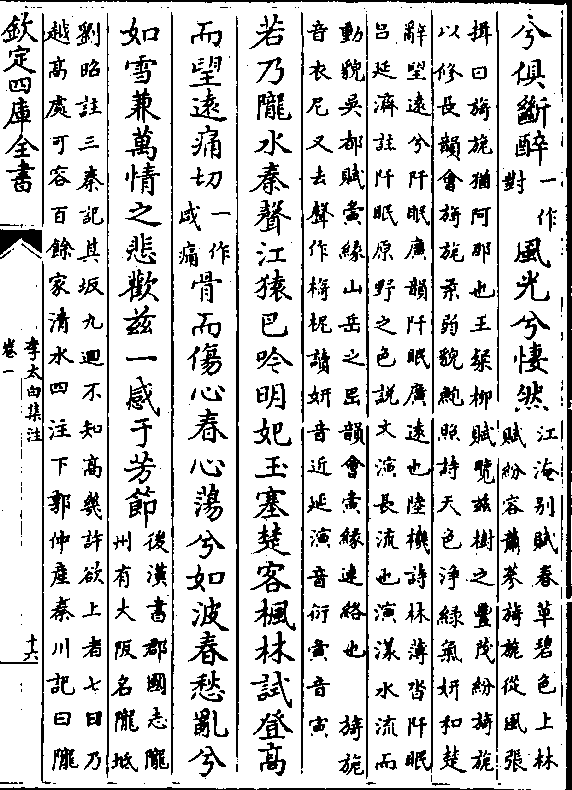 兮俱斷醉一作對風光兮悽然江淹别賦春草碧色上林賦紛容蕭蔘旖旎從風張
揖曰旖旎猶阿那也王粲柳賦覽兹樹之豐茂紛旖旎以修長韻會旖旎柔弱貌鮑照詩天色浄緑氣妍和楚
辭望逺兮阡眠廣韻阡眠廣逺也陸機詩林薄杳阡眠吕延濟註阡眠原野之色説文演長流也演漾水流而
動貌吴都賦夤縁山岳之岊韻會夤縁連絡也 旖旎音衣尼又去聲作椅柅讀妍音近延演音衍夤音寅
若乃隴水秦聲江猿巴吟明妃玉塞楚客楓林試登髙
而望逺痛切一作咸痛骨而傷心春心蕩兮如波春愁亂兮
如雪兼萬情之悲歡兹一感于芳節後漢書郡國志隴州有大阪名隴坻
劉昭註三秦記其坂九迴不知髙幾許欲上者七日乃越髙處可容百餘家清水四注下郭仲産秦川記曰隴
欽定四庫全書
李太白集注
卷一
十六